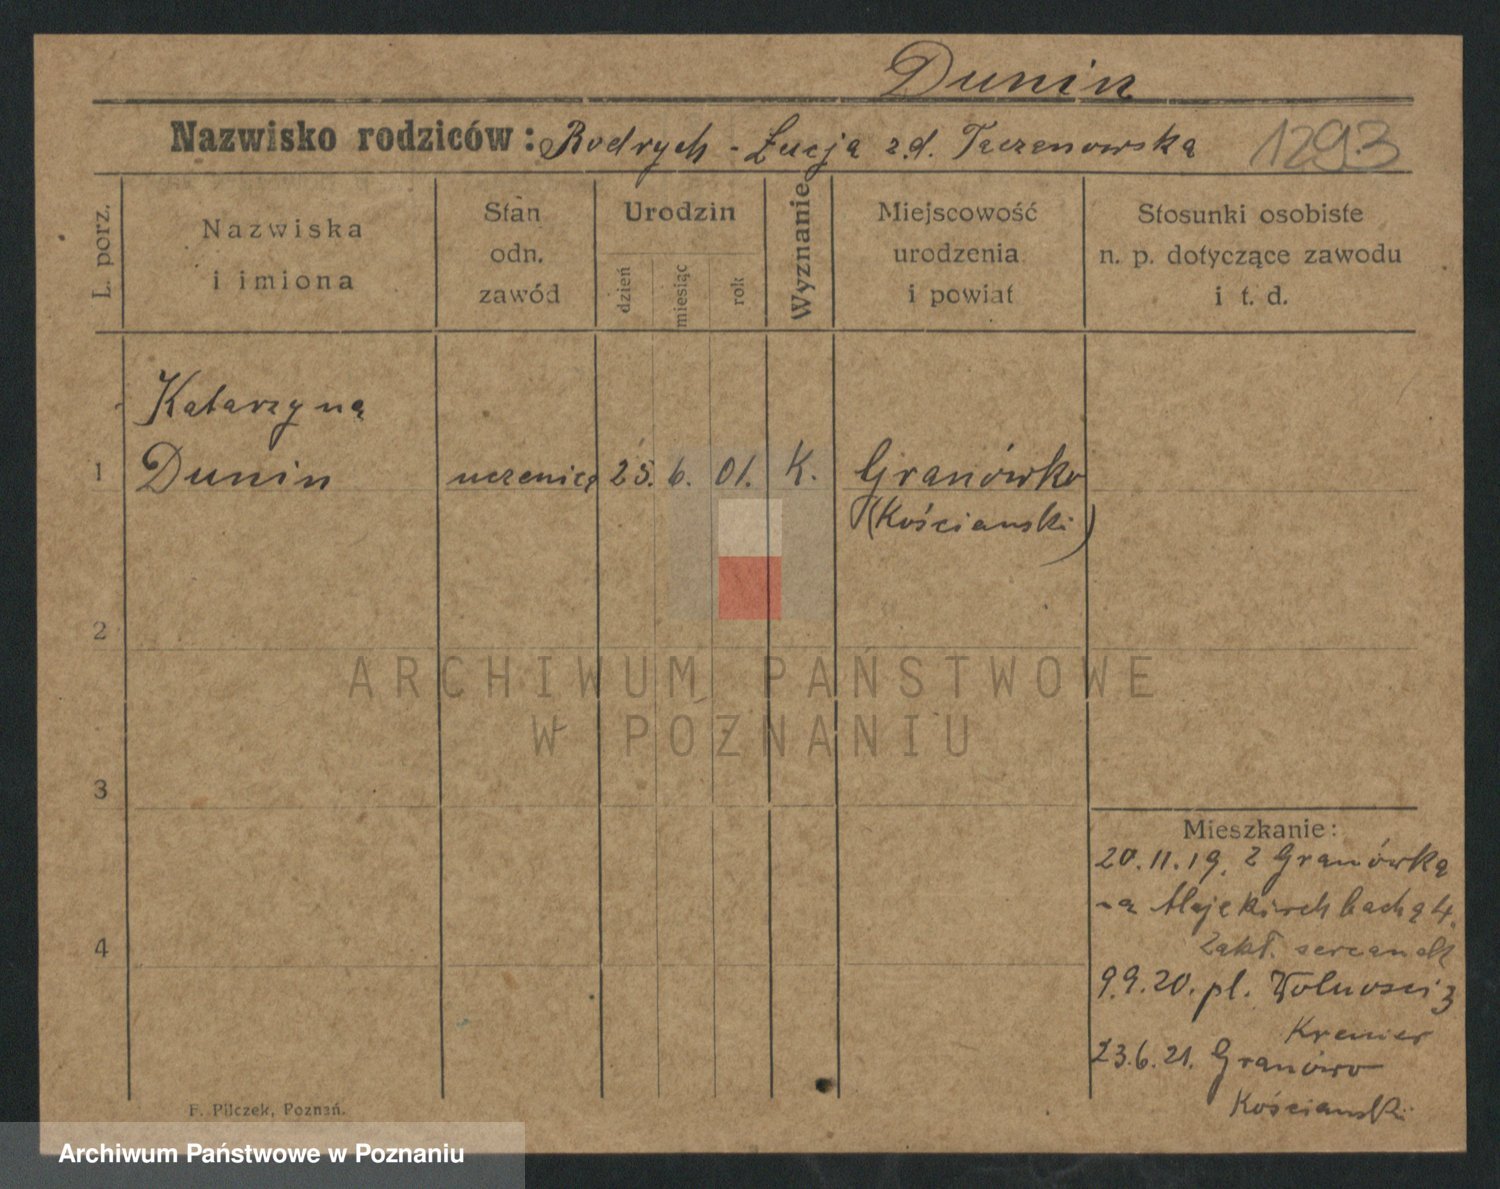 Dunin
Nazwisko rodziców: Rodrych - Łucja z d. Taczanowska 1293
L. porz.
Nazwiska
i imiona
Stan
odn.
zawód
Urodzin
dzień
miesiąc
rok
Wyznanie
Miejscowość
urodzenia
i powiat
Stosunki osobiste
n. p. dotyczące zawodu
i t. d.
Katarzyna
1 Dunin uczenica 25. 6. 01. K. Granówko
(Kościanski)
2
ARCHIWUM PAŃSTWOWE
W POZNANIU
3
Mieszkanie:
20.11.19. z Granówka
na Kirchbacha 4.
Zakł.
4
9.9.20. pl. Wolnosci 3
Kremer
23.6.21. Granówo
Kościanski
F. Pilczek, Poznań.
Archiwum Państwowe w Poznaniu